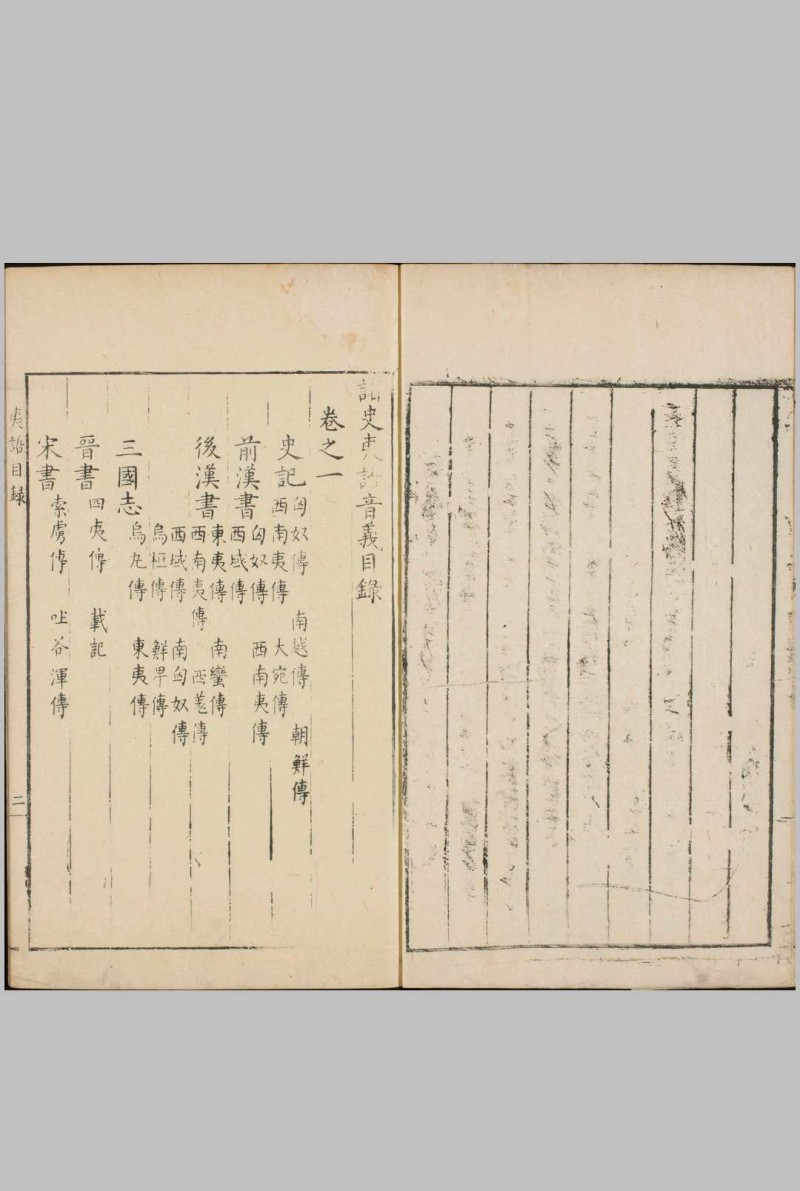 諸史夷語音義目錄
卷之一
史記
匈奴傳 南越傳 朝鮮傳
西南夷傳 大宛傳
前漢書
匈奴傳 西南夷傳
西域傳
後漢書
東夷傳 南蠻傳
西南夷傳 西羌傳
西域傳 南匈奴傳
烏桓傳 鮮卑傳
三國志
烏丸傳 東夷傳
晉書
四夷傳 載記
宋書
索虜傳 吐谷渾傳
夷語目録
二